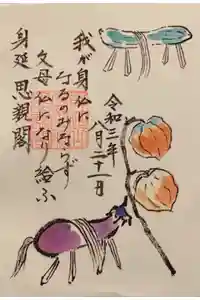 我が身仏に
なるのみならず
父母仏になり給ふ
身延 思親閣
令和三年
八月二十一日